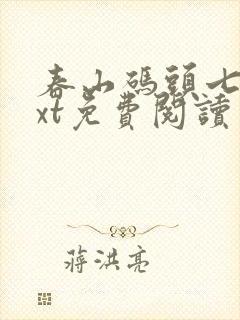 春山碼頭七
xt免費閱讀
蔣洪亮